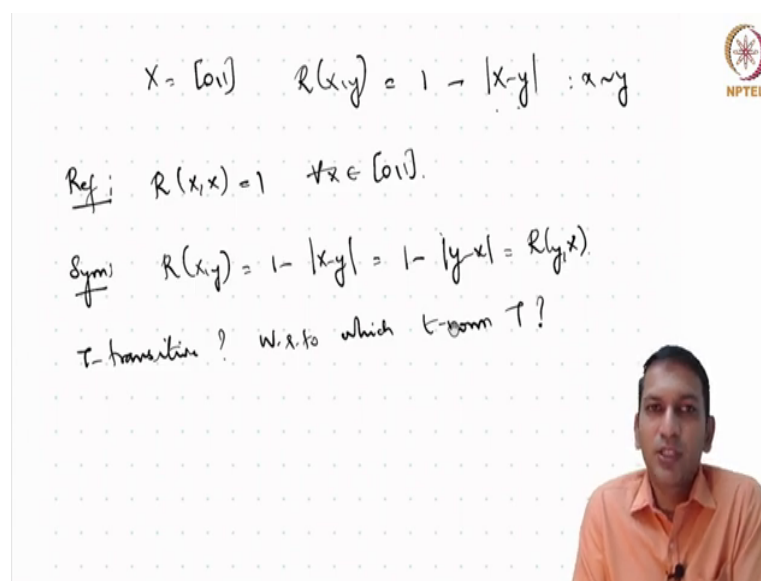 X = [0,1] R(x,y) = 1 - |x-y| : x~y
NPTEL
Ref: R(x,x) = 1 ∀x ∈ [0,1].
Sym: R(x,y) = 1 - |x-y| = 1 - |y-x| = R(y,x).
T-transitive ? W.r.to which t-norm T ?